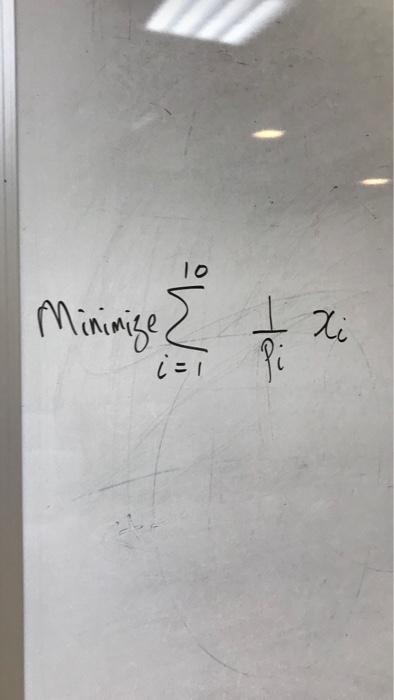 Minimize \sum_{i=1}^{10} \frac{1}{p_i} x_i